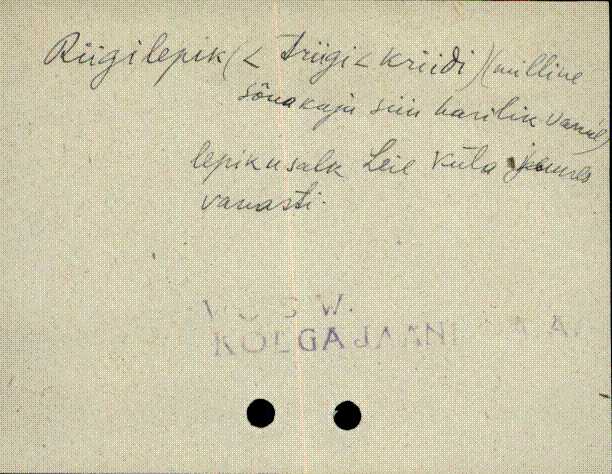 Riigilepik (< Triigi < Kriidi) (milline
sõnakuju siin harilik vanul)
lepikusalk Leie küla juures
vanasti.
KOLGAJAANI